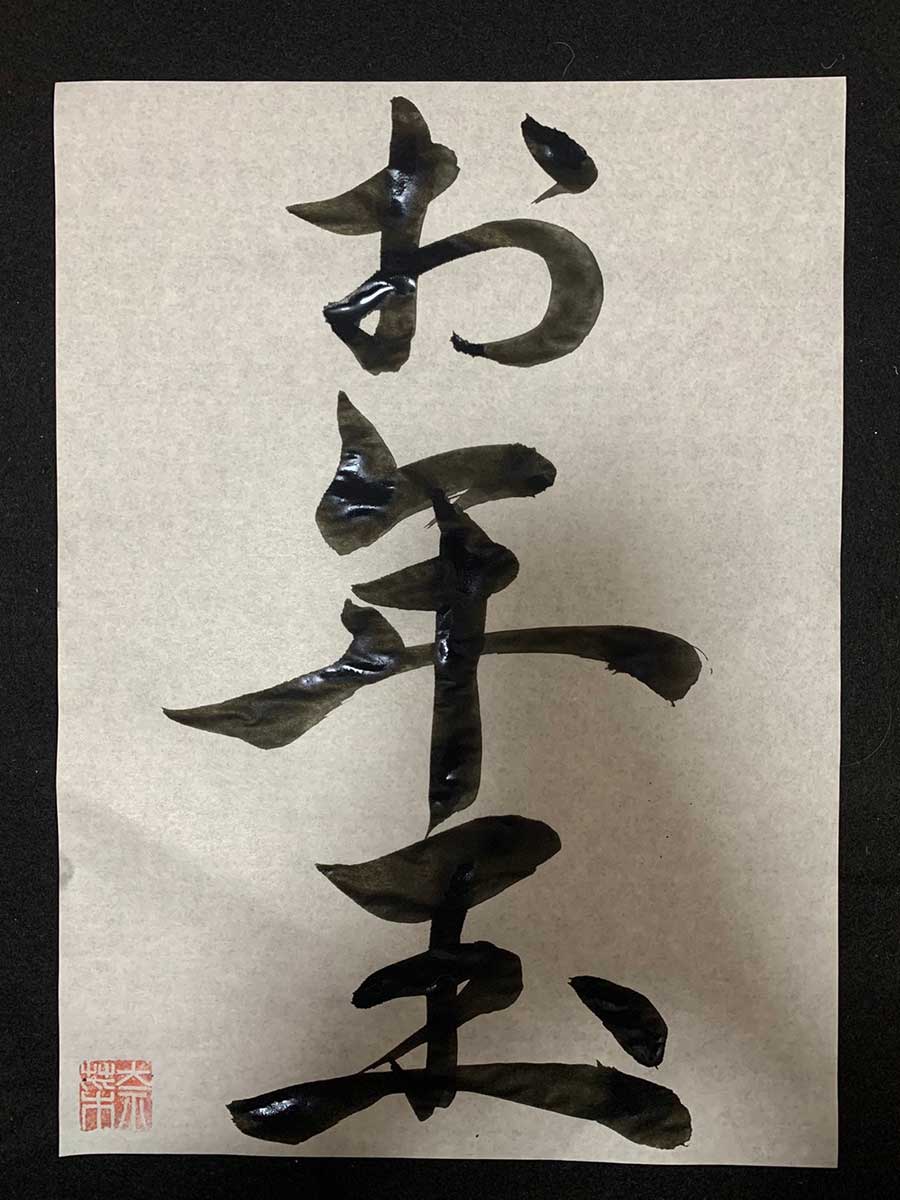 お年玉